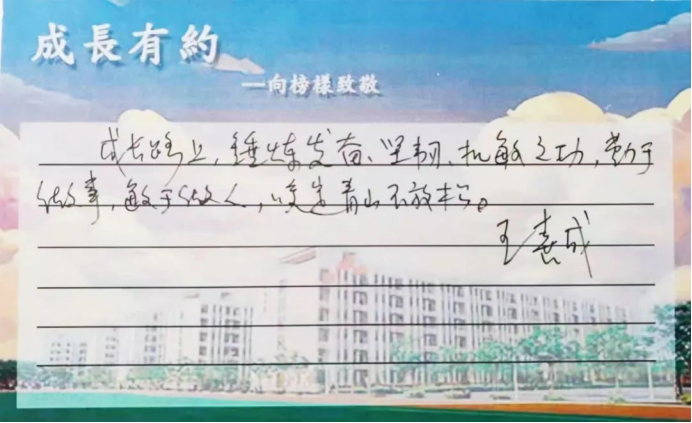 成長有約
—向榜樣致敬
成长路上，锤炼发奋、坚韧、机敏之功，勤于
做事，敏于做人，咬定青山不放松。
王惠成